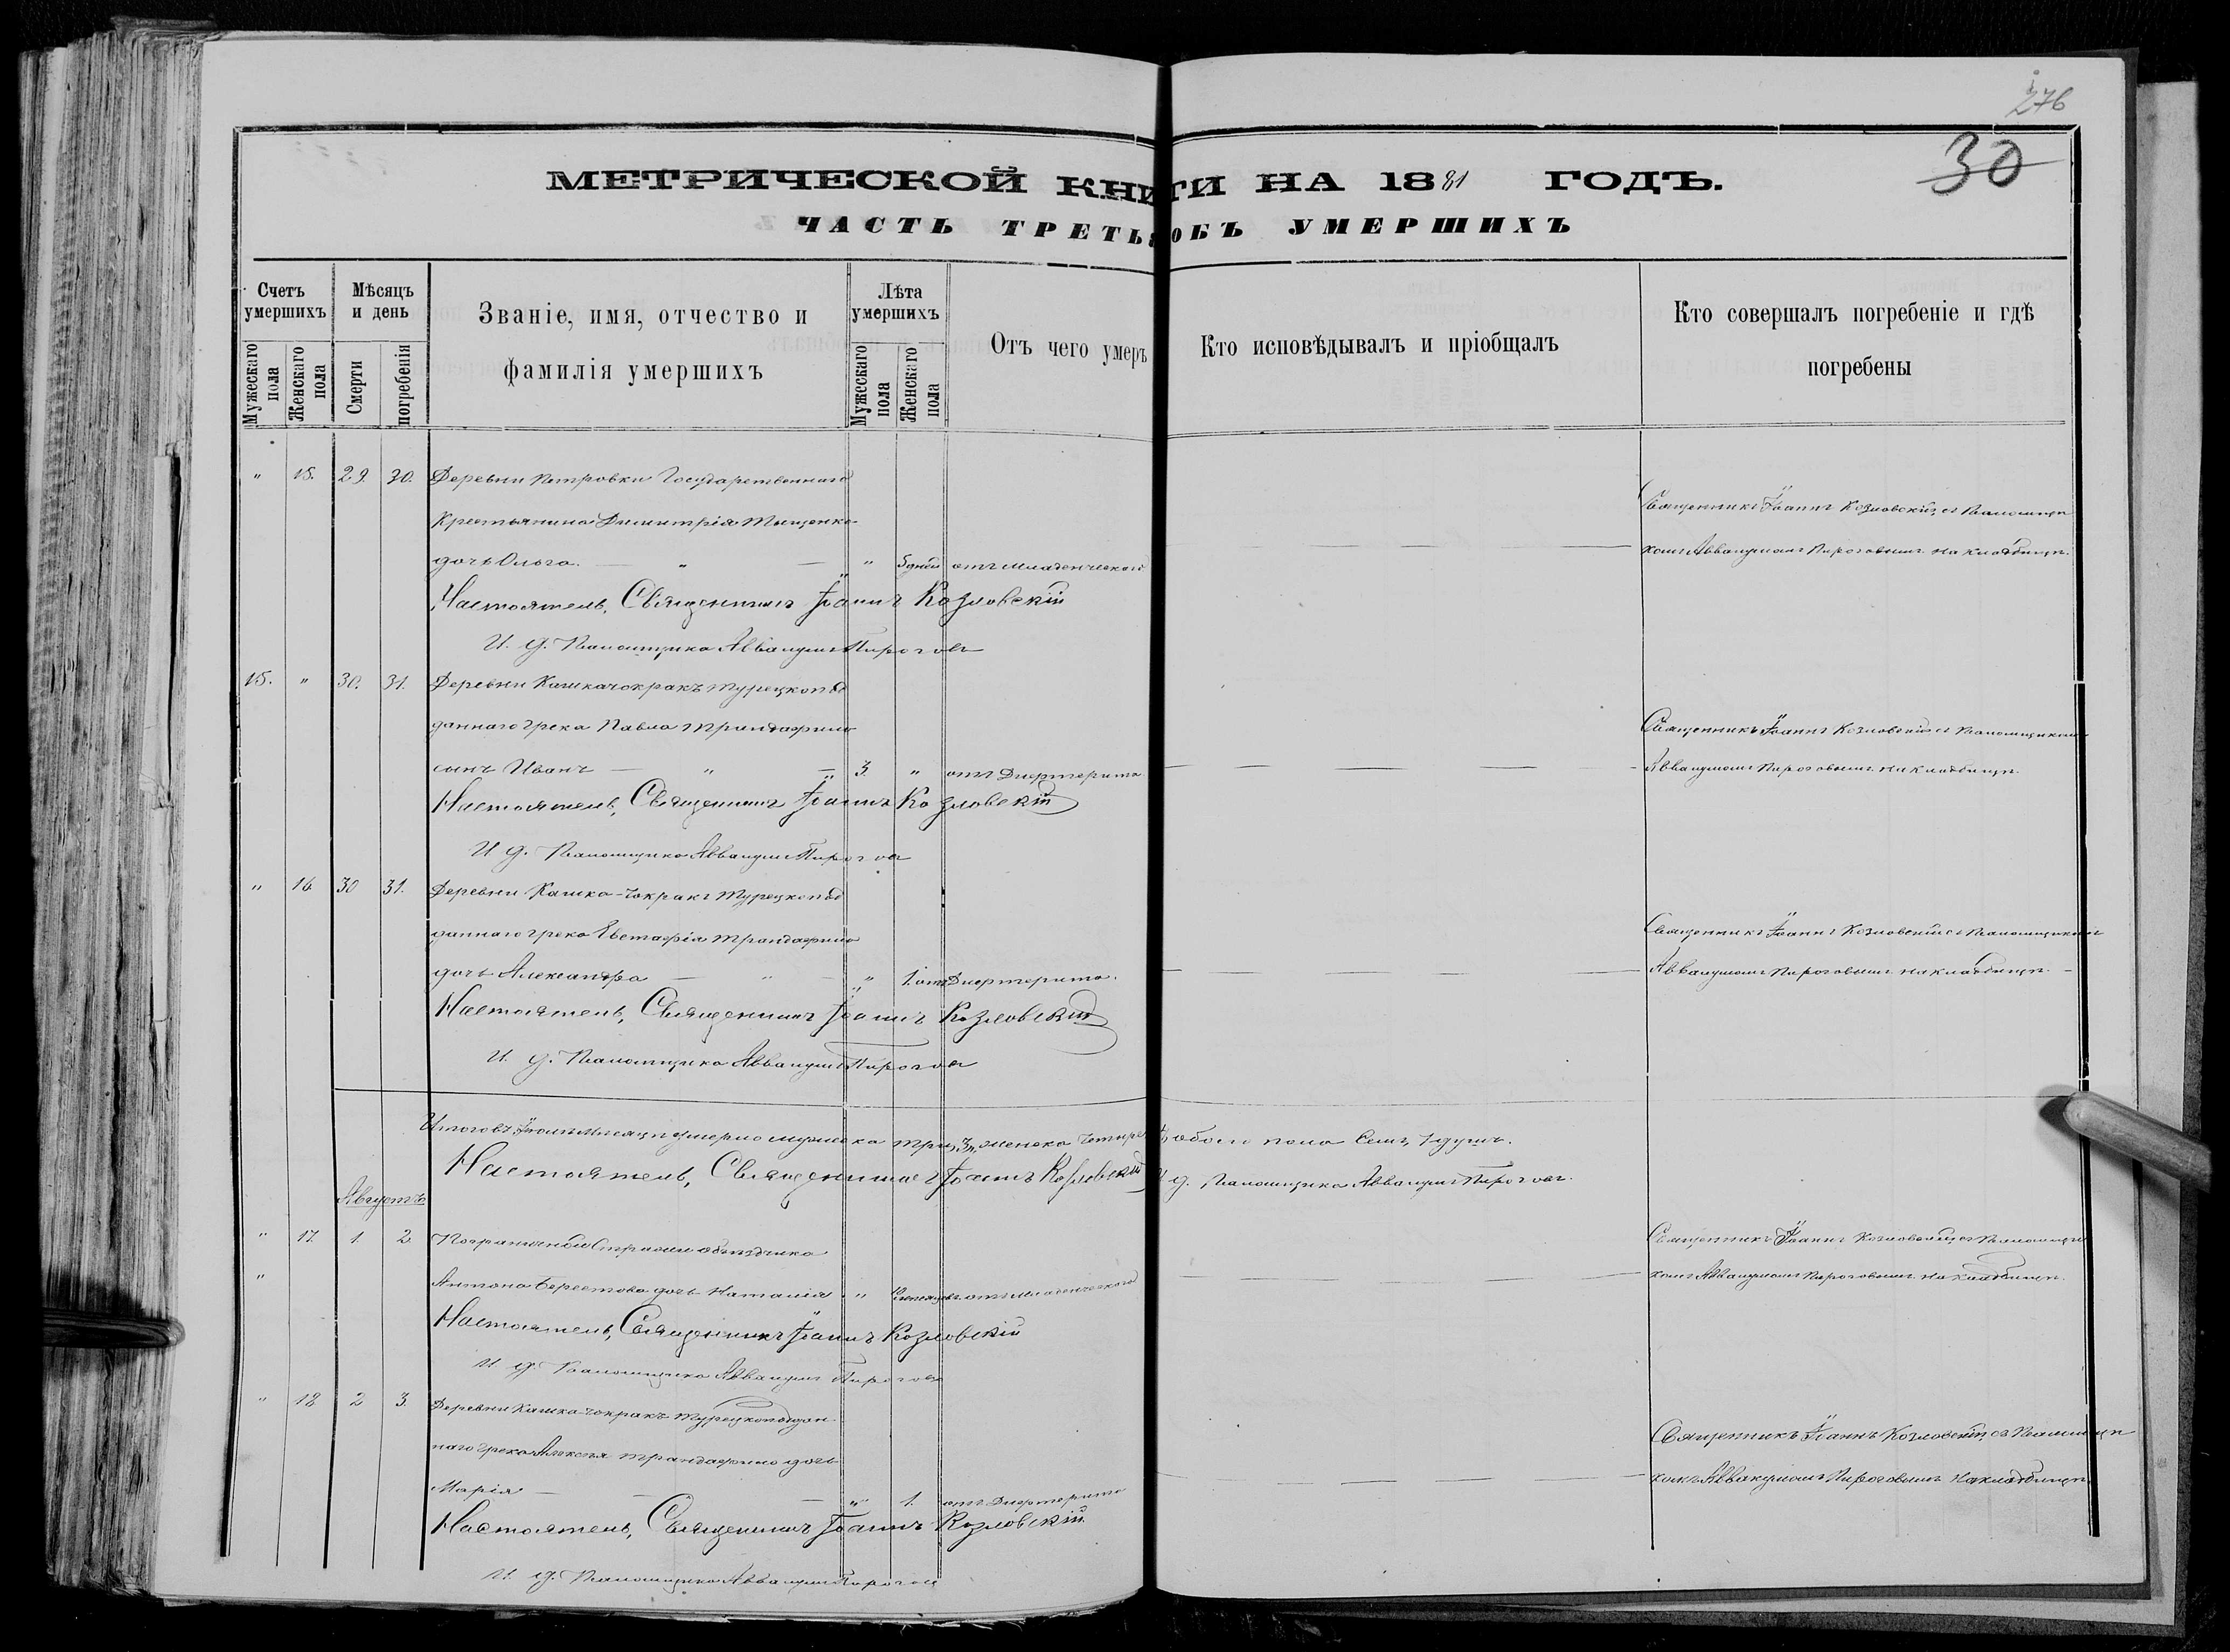 276
30
МЕТРИЧЕСКОЙ КНИГИ НА 1881 ГОДЪ.
ЧАСТЬ ТРЕТЬЯ ОБЪ УМЕРШИХЪ
Счетъ умершихъ
Мужескаго пола
Женскаго пола
Мѣсяцъ и день
Смерти
погребенія
Званіе, имя, отчество и
фамилія умершихъ
Лѣта умершихъ
Мужескаго пола
Женскаго пола
Отъ чего умеръ
Кто исповѣдывалъ и пріобщалъ
Кто совершалъ погребеніе и гдѣ
погребены
" 15. 29. 30. Деревни Петровки Государственнаго
Крестьянина Димитрія Тищенко
дочь Ольга. — " — " 5 дней отъ младенческаго
Священникъ Іоаннъ Козловскій, съ Псаломщи
комъ Аввакумомъ Пироговымъ на кладбищѣ.
Настоятель, Священникъ Іоаннъ Козловскій
И. д. Псаломщика Аввакумъ Пироговъ
15. " 30. 31. Деревни Кашка-чокракъ турецкопод
даннаго грека Павла Трандафило
сынъ Иванъ — " — 3. " отъ Дифтерита
Священникъ Іоаннъ Козловскій съ Псаломщикомъ
Аввакумомъ Пироговымъ на кладбищѣ.
Настоятель, Священникъ Іоаннъ Козловскій
И д. Псаломщика Аввакумъ Пироговъ
" 16 30 31. Деревни Кашка-чокракъ Турецкопод
даннаго грека Евстафія Трандафило
дочь Александра — " — " 1. отъ Дифтерита.
Священникъ Іоаннъ Козловскій съ Псаломщикомъ
Аввакумомъ Пироговымъ на кладбищѣ. —
Настоятель, Священникъ Іоаннъ Козловскій
И. д. Псаломщика Аввакумъ Пироговъ
Итого въ Іюлѣ мѣсяцѣ умерло мужеска три, 3, женска четыре, 4, обоего пола Семь, 7 душъ.
Настоятель, Священникъ Іоаннъ Козловскій И д. Псаломщика Аввакумъ Пироговъ.
Августъ
" 17. 1. 2 Пограничной Стражи объѣздчика
" Антона Берестова дочь Наталія " мѣсяцевъ отъ младенческаго
Священникъ Іоаннъ Козловскій, съ Псаломщи
комъ Аввакумомъ Пироговымъ на кладбищѣ.
Настоятель, Священникъ Іоаннъ Козловскій
И. д. Псаломщика Аввакумъ Пироговъ
" 18 2 3. Деревни Кашка-чокракъ Турецкоподдан
наго грека Алексѣя Трандафило дочь
Марія — — " 1. отъ Дифтерита
Священникъ Іоаннъ Козловскій, съ Псаломщи
комъ Аввакумомъ Пироговымъ на кладбищѣ
Настоятель, Священникъ Іоаннъ Козловскій
И. д. Псаломщика Аввакумъ Пироговъ